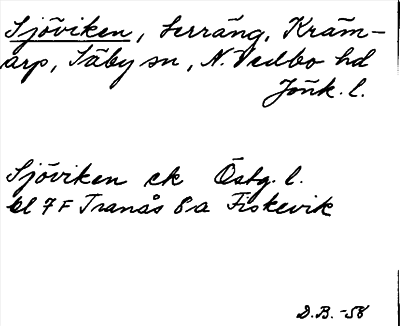 Sjöviken, Serräng, Kräm-
arp, Säby sn, N. Vedbo hd
Jönk. l.
Sjöviken ek Östg. l.
bl 7 F Tranås 8 a Fiskevik
D.B. -58